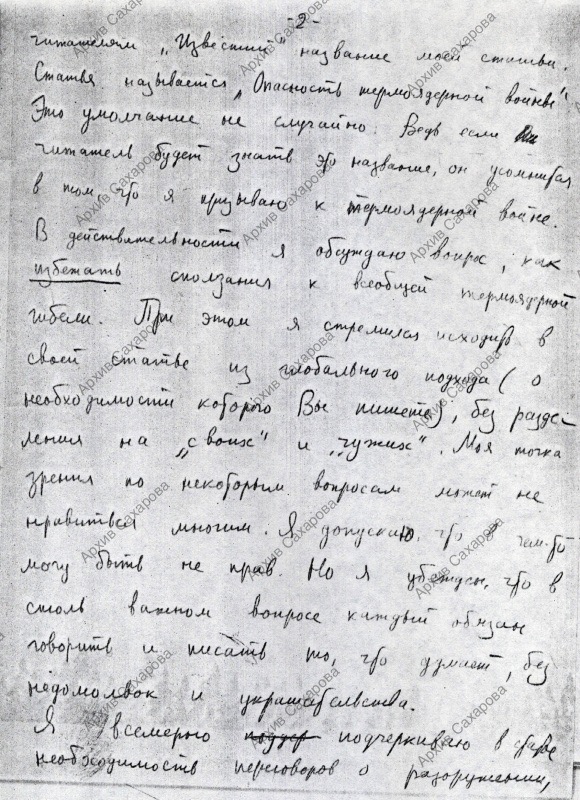 -2-
читателям „Известий" название моей статьи.
Статья называется „Опасность термоядерной войны"
Это умолчание не случайно. Ведь если
читатель будет знать это название, он усомнится
в том что я призываю к термоядерной войне.
В действительности я обсуждаю вопрос, как
избежать сползания к всеобщей термоядерной
гибели. При этом я стремился исходить в
своей статье из глобального подхода (о
необходимости которого Вы пишете), без разде-
ления на „своих" и „чужих". Моя точка
зрения по некоторым вопросам может не
нравиться многим. Я допускаю, что в чем-то
могу быть не прав. Но я убежден, что в
столь важном вопросе каждый обязан
говорить и писать то, что думает, без
недомолвок и украшательства.
Я всемерно подчеркиваю в статье
необходимость переговоров о разоружении,
Архив Сахарова